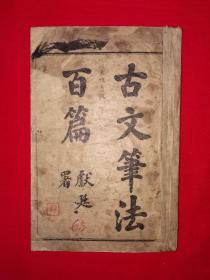 古文筆法
百篇
獻廷
署